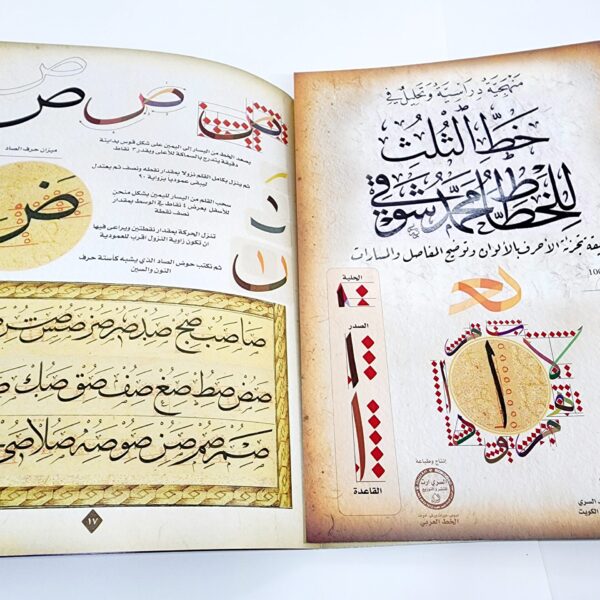 ص
ص ص ص ص
ميزان حرف الصاد
يصعد الخط من اليسار إلى اليمين على شكل قوس بداية
دقيقة يتدرج بالسماكة للأعلى وبقدر ٣ نقاط
ثم ينزل بكامل القلم نزولاً بمقدار نقطه ونصف ثم يعتدل
ليبقى عمودياً بزاوية ٩٠
سحب القلم من اليسار لليمين بشكل منحن
للأسفل بعرض ٤ نقاط في الوسط بمقدار
نصف نقطة
تنزل الحركة بمقدار نقطتين ويراعى فيها
ان تكون زاوية النزول اقرب للعمودية
ثم تكتب حوض الصاد الذي يشبه كاسئة حرف
النون والسين
ض
صا صب صج صد صر صر صس صت
صص صط صع صف صق صك
صم صم صن صو صه صلا صي
١٧
منهجية دراسية وتحليل في
خط الثلث
للخطاط محمد شوقي
تجزئة الأحرف بالألوان وتوضيح المفاصل والمسارات
100
الحلية
الصدر
القاعدة
إنتاج وطباعة
السري ارت
الخط العربي
السري
الكويت